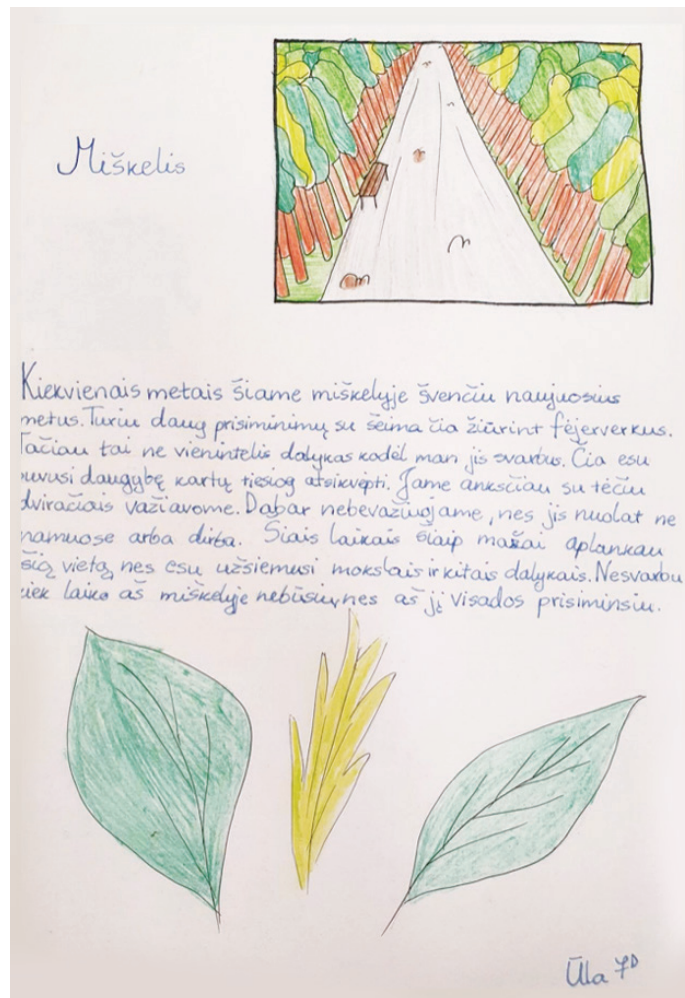 Miškelis
Kiekvienais metais šiame miškelyje švenčiu naujuosius
metus. Turiu daug prisiminimų su šeima čia žiūrint fėjerverkus.
Tačiau tai ne vienintelis dalykas kodėl man jis svarbus. Čia esu
buvusi daugybę kartų tiesiog atsikvėpti. Jame anksčiau su tėčiu
dviračiais važiavome. Dabar nebevažiuojame, nes jis nuolat ne
namuose arba dirba. Šiais laikais šiaip mažai aplankau
šią vietą nes esu užsiėmusi mokslais ir kitais dalykais. Nesvarbu
kiek laiko aš miškelyje nebūsiu, nes aš jį visados prisiminsiu.
Ūla 7D